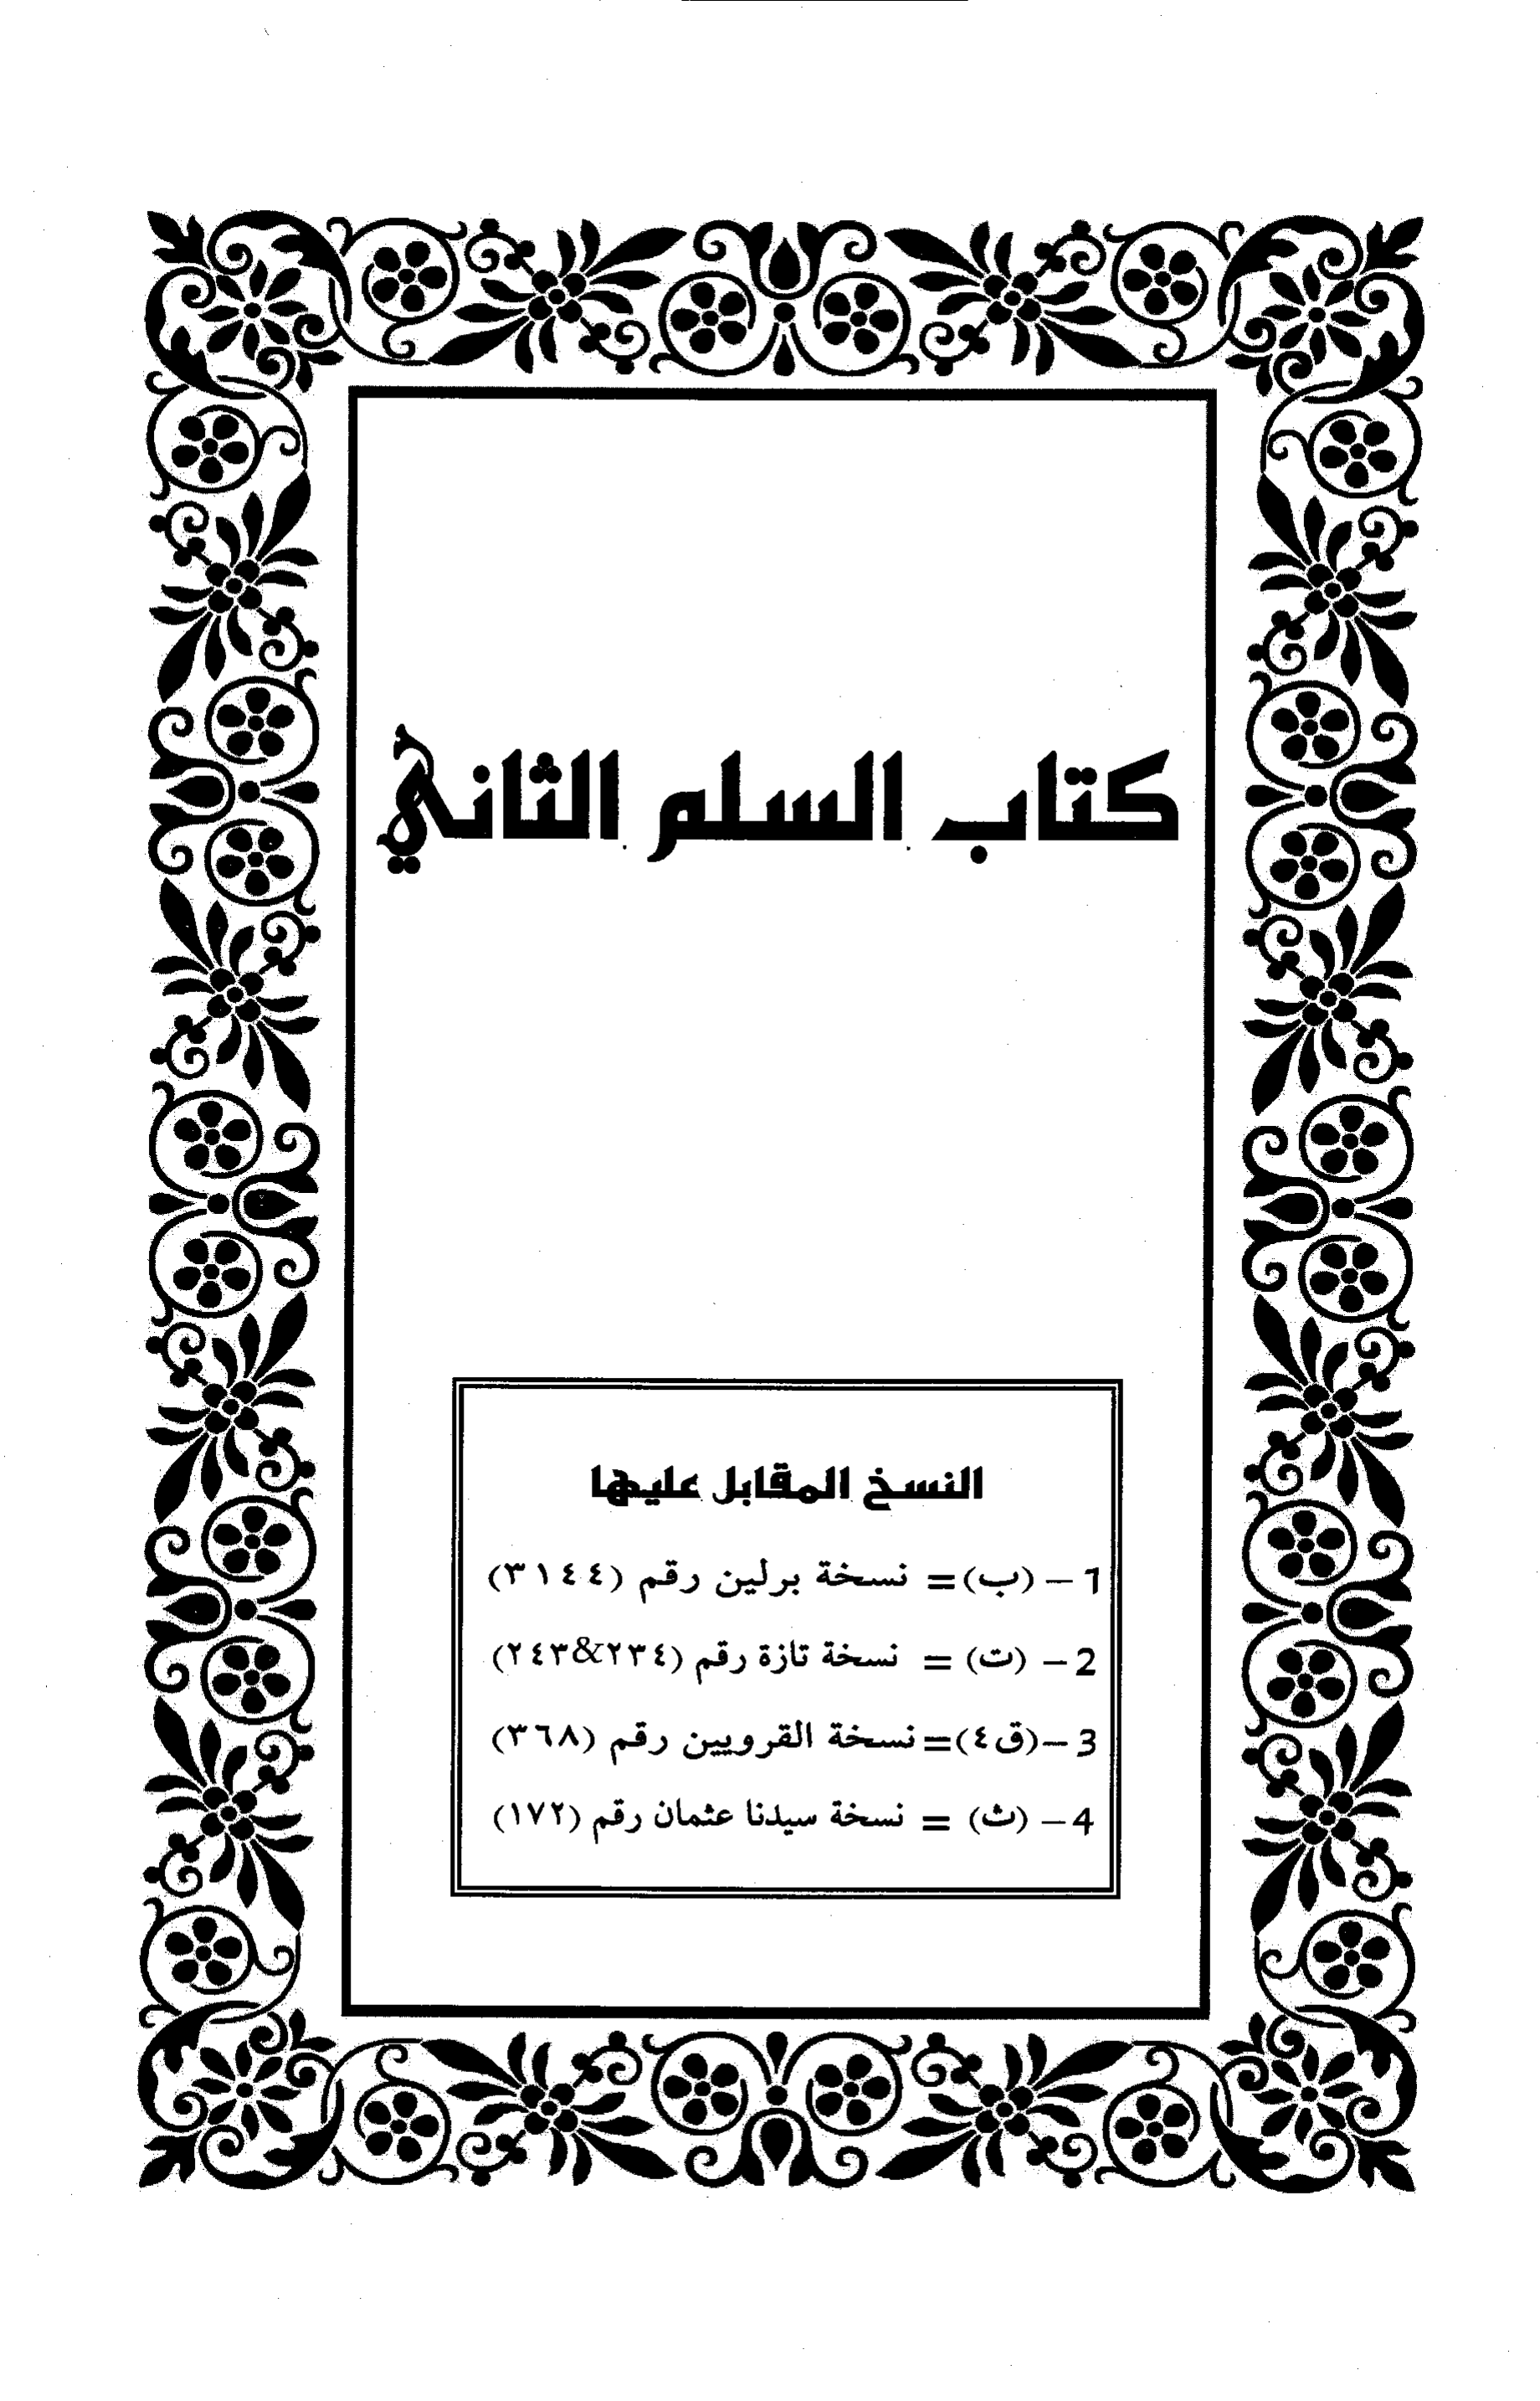 كتاب السلم الثاني
النسخ المقابل عليها
1 - (ب) = نسخة برلين رقم (٣١٤٤)
2 - (ت) = نسخة تازة رقم (٢٣٤&٢٤٣)
3 - (ق٤) = نسخة القرويين رقم (٣٦٨)
4 - (ث) = نسخة سيدنا عثمان رقم (١٧٢)